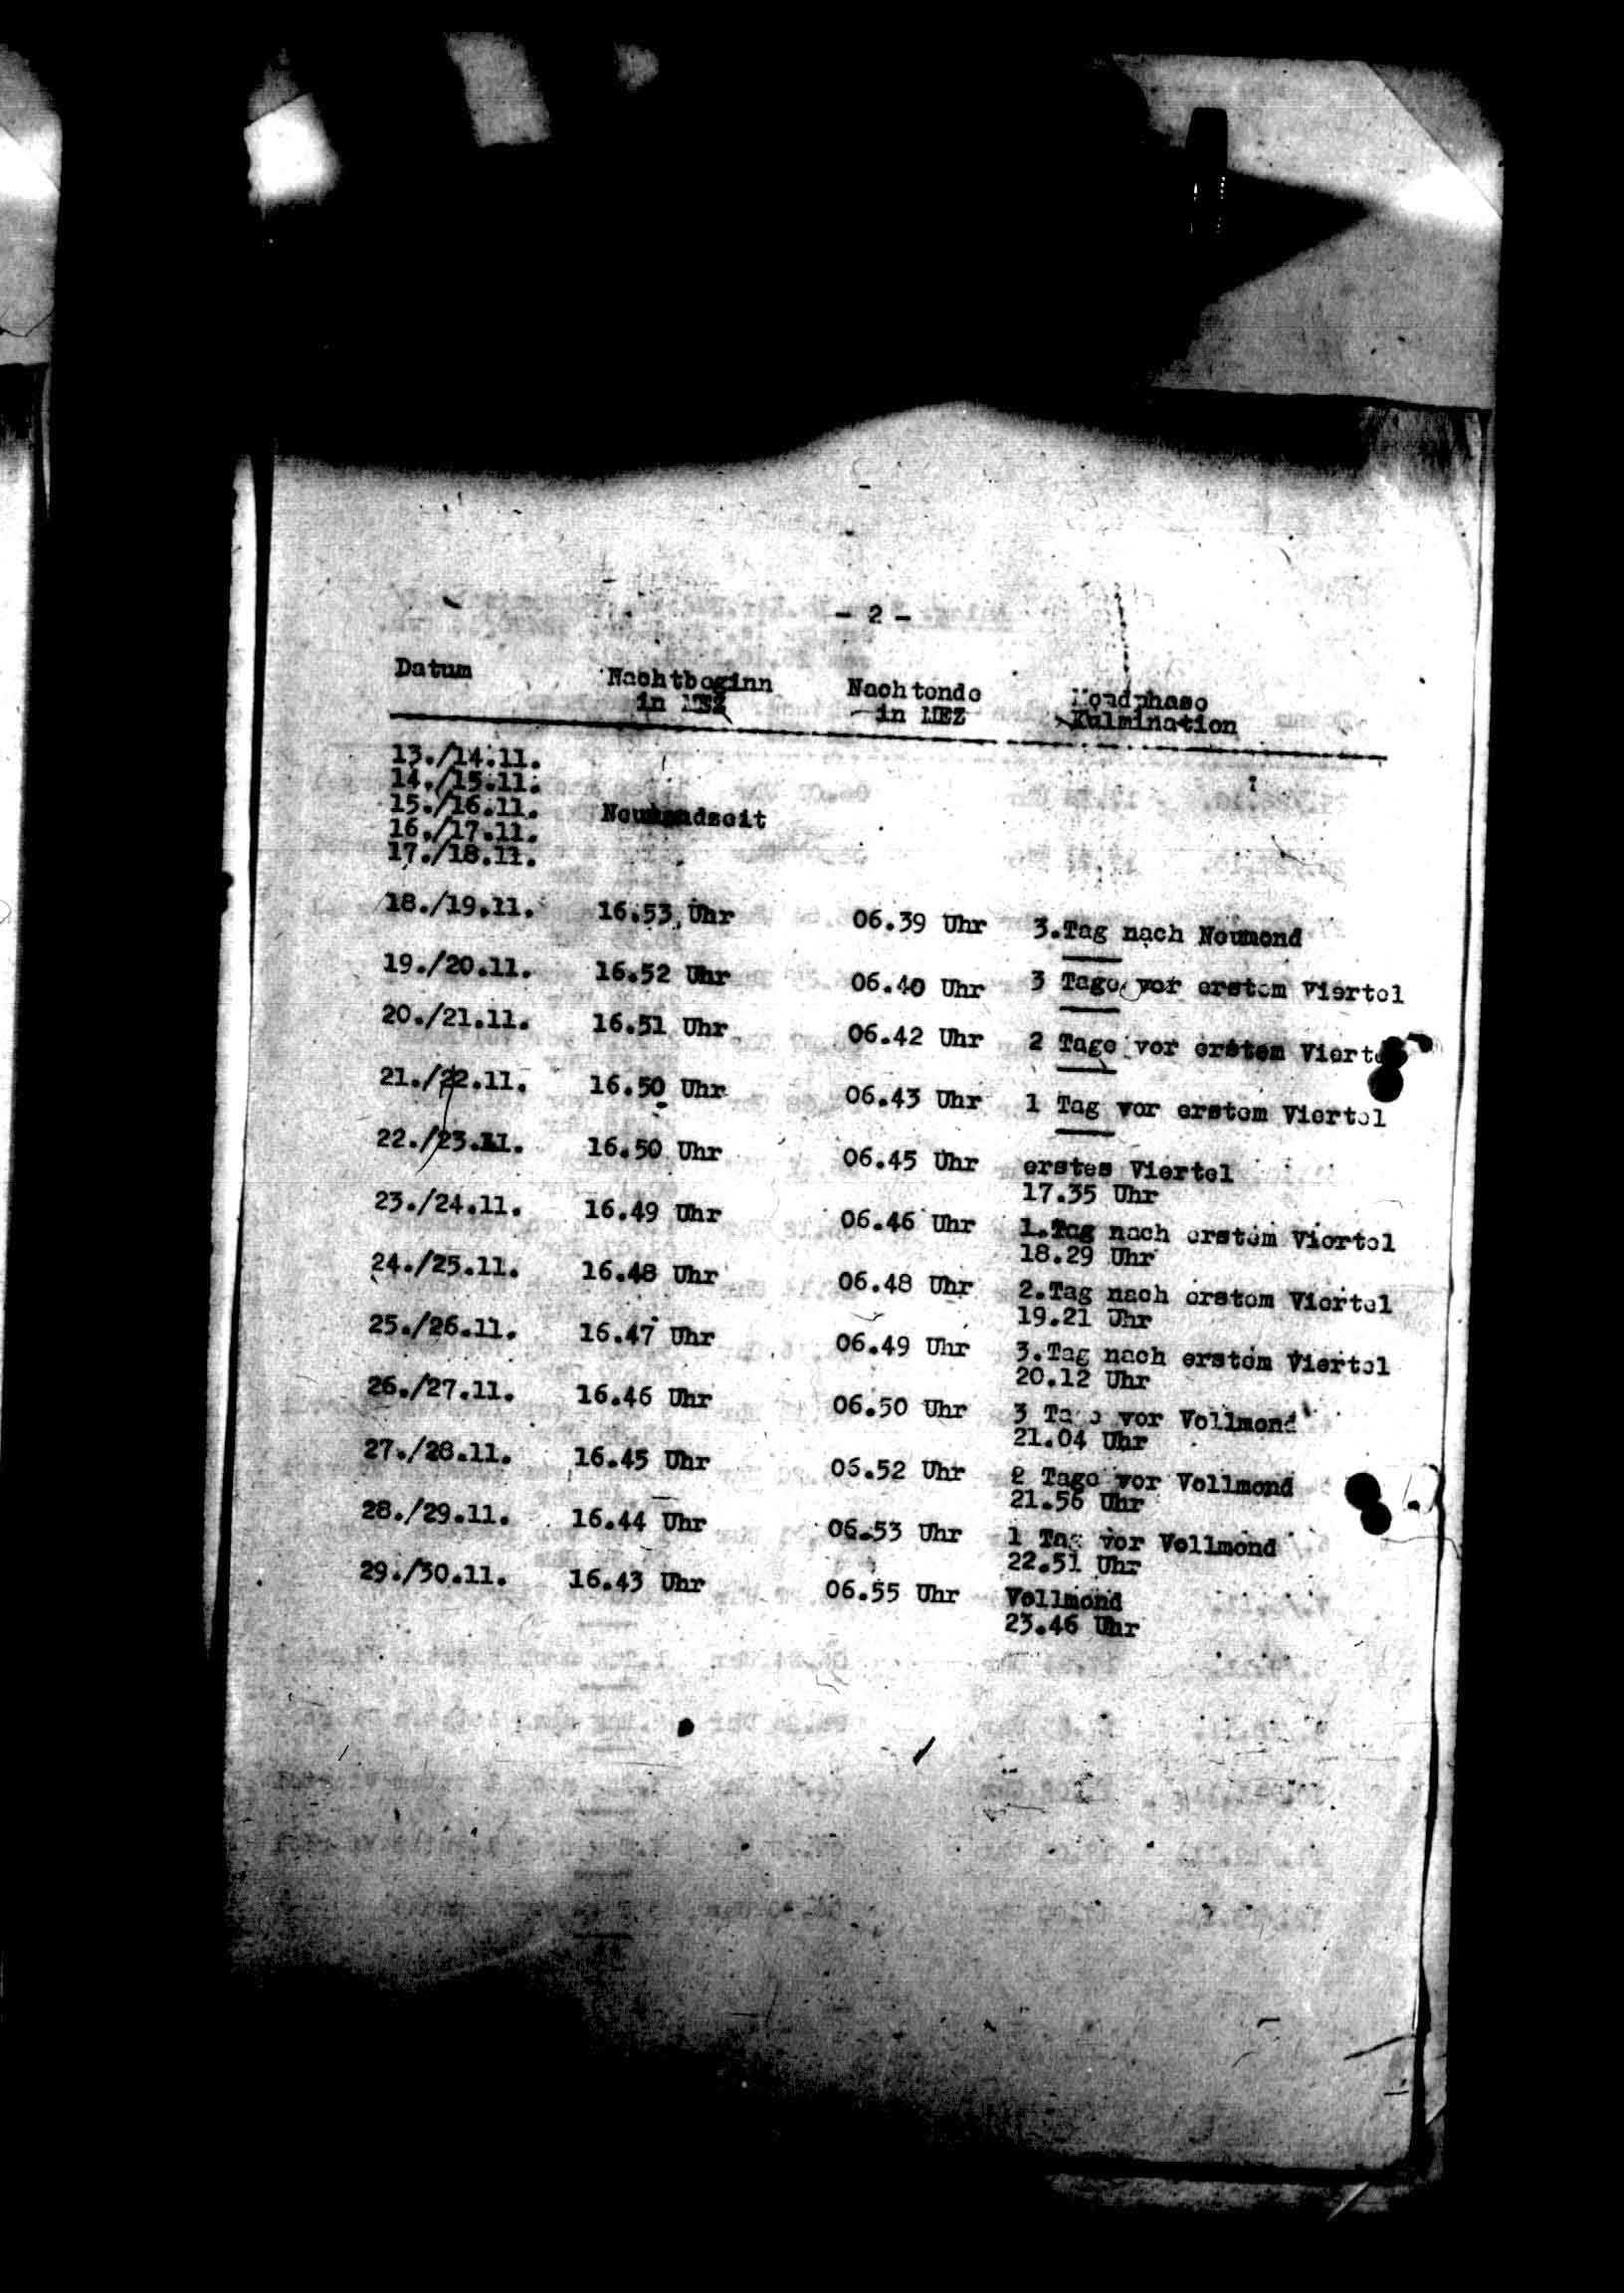 - 2 -
Datum Nachtbeginn Nachtende Mondphase
in MEZ in MEZ Kulmination
13./14.11.
14./15.11.
15./16.11. Neumondzeit
16./17.11.
17./18.11.
18./19.11. 16.53 Uhr 06.39 Uhr 3.Tag nach Neumond
19./20.11. 16.52 Uhr 06.40 Uhr 3 Tage vor erstem Viertel
20./21.11. 16.51 Uhr 06.42 Uhr 2 Tage vor erstem Viertel
21./22.11. 16.50 Uhr 06.43 Uhr 1 Tag vor erstem Viertel
22./23.11. 16.50 Uhr 06.45 Uhr erstes Viertel
17.35 Uhr
23./24.11. 16.49 Uhr 06.46 Uhr 1.Tag nach erstem Viertel
18.29 Uhr
24./25.11. 16.48 Uhr 06.48 Uhr 2.Tag nach erstem Viertel
19.21 Uhr
25./26.11. 16.47 Uhr 06.49 Uhr 3.Tag nach erstem Viertel
20.12 Uhr
26./27.11. 16.46 Uhr 06.50 Uhr 3 Tage vor Vollmond
21.04 Uhr
27./28.11. 16.45 Uhr 06.52 Uhr 2 Tage vor Vollmond
21.56 Uhr
28./29.11. 16.44 Uhr 06.53 Uhr 1 Tag vor Vollmond
22.51 Uhr
29./30.11. 16.43 Uhr 06.55 Uhr Vollmond
23.46 Uhr